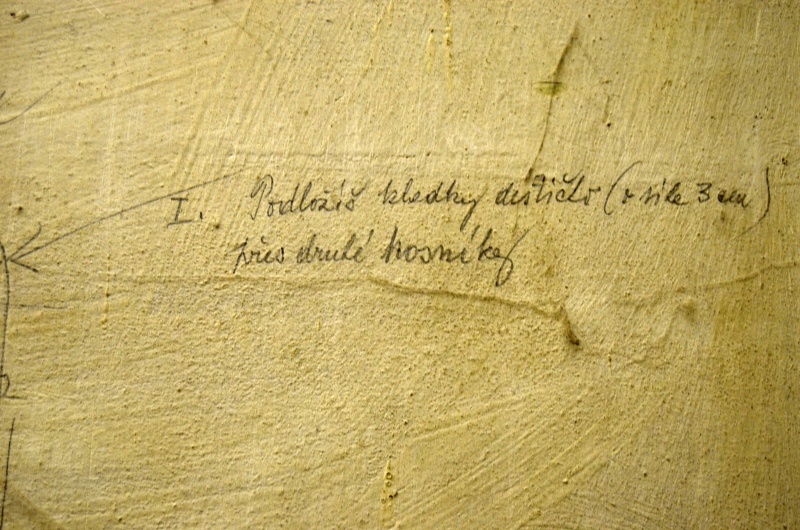 I. Podložíš kledky destičkō (o síle 3 cm)
přes druhé nosníky